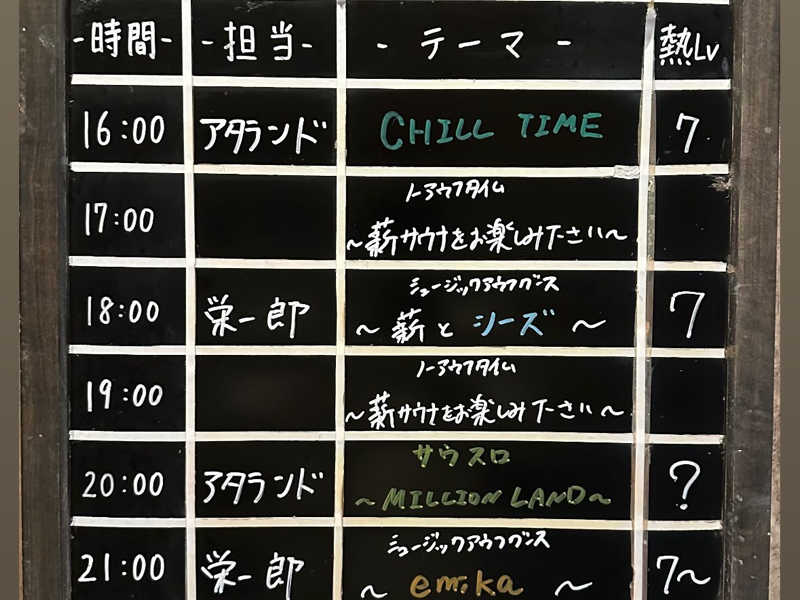 -時間- -担当- - テーマ - 熱Lv
16:00 アタランド CHILL TIME 7
ノーアウフタイム
17:00 ~薪サウナをお楽しみ下さい~
ミュージックアウフグース
18:00 栄一郎 ~ 薪と シーズ ~ 7
ノーアウフタイム
19:00 ~薪サウナをお楽しみ下さい~
サウスロ
20:00 アタランド ~MILLION LAND~ ?
ミュージックアウフグース
21:00 栄一郎 ~ emika ~ 7~